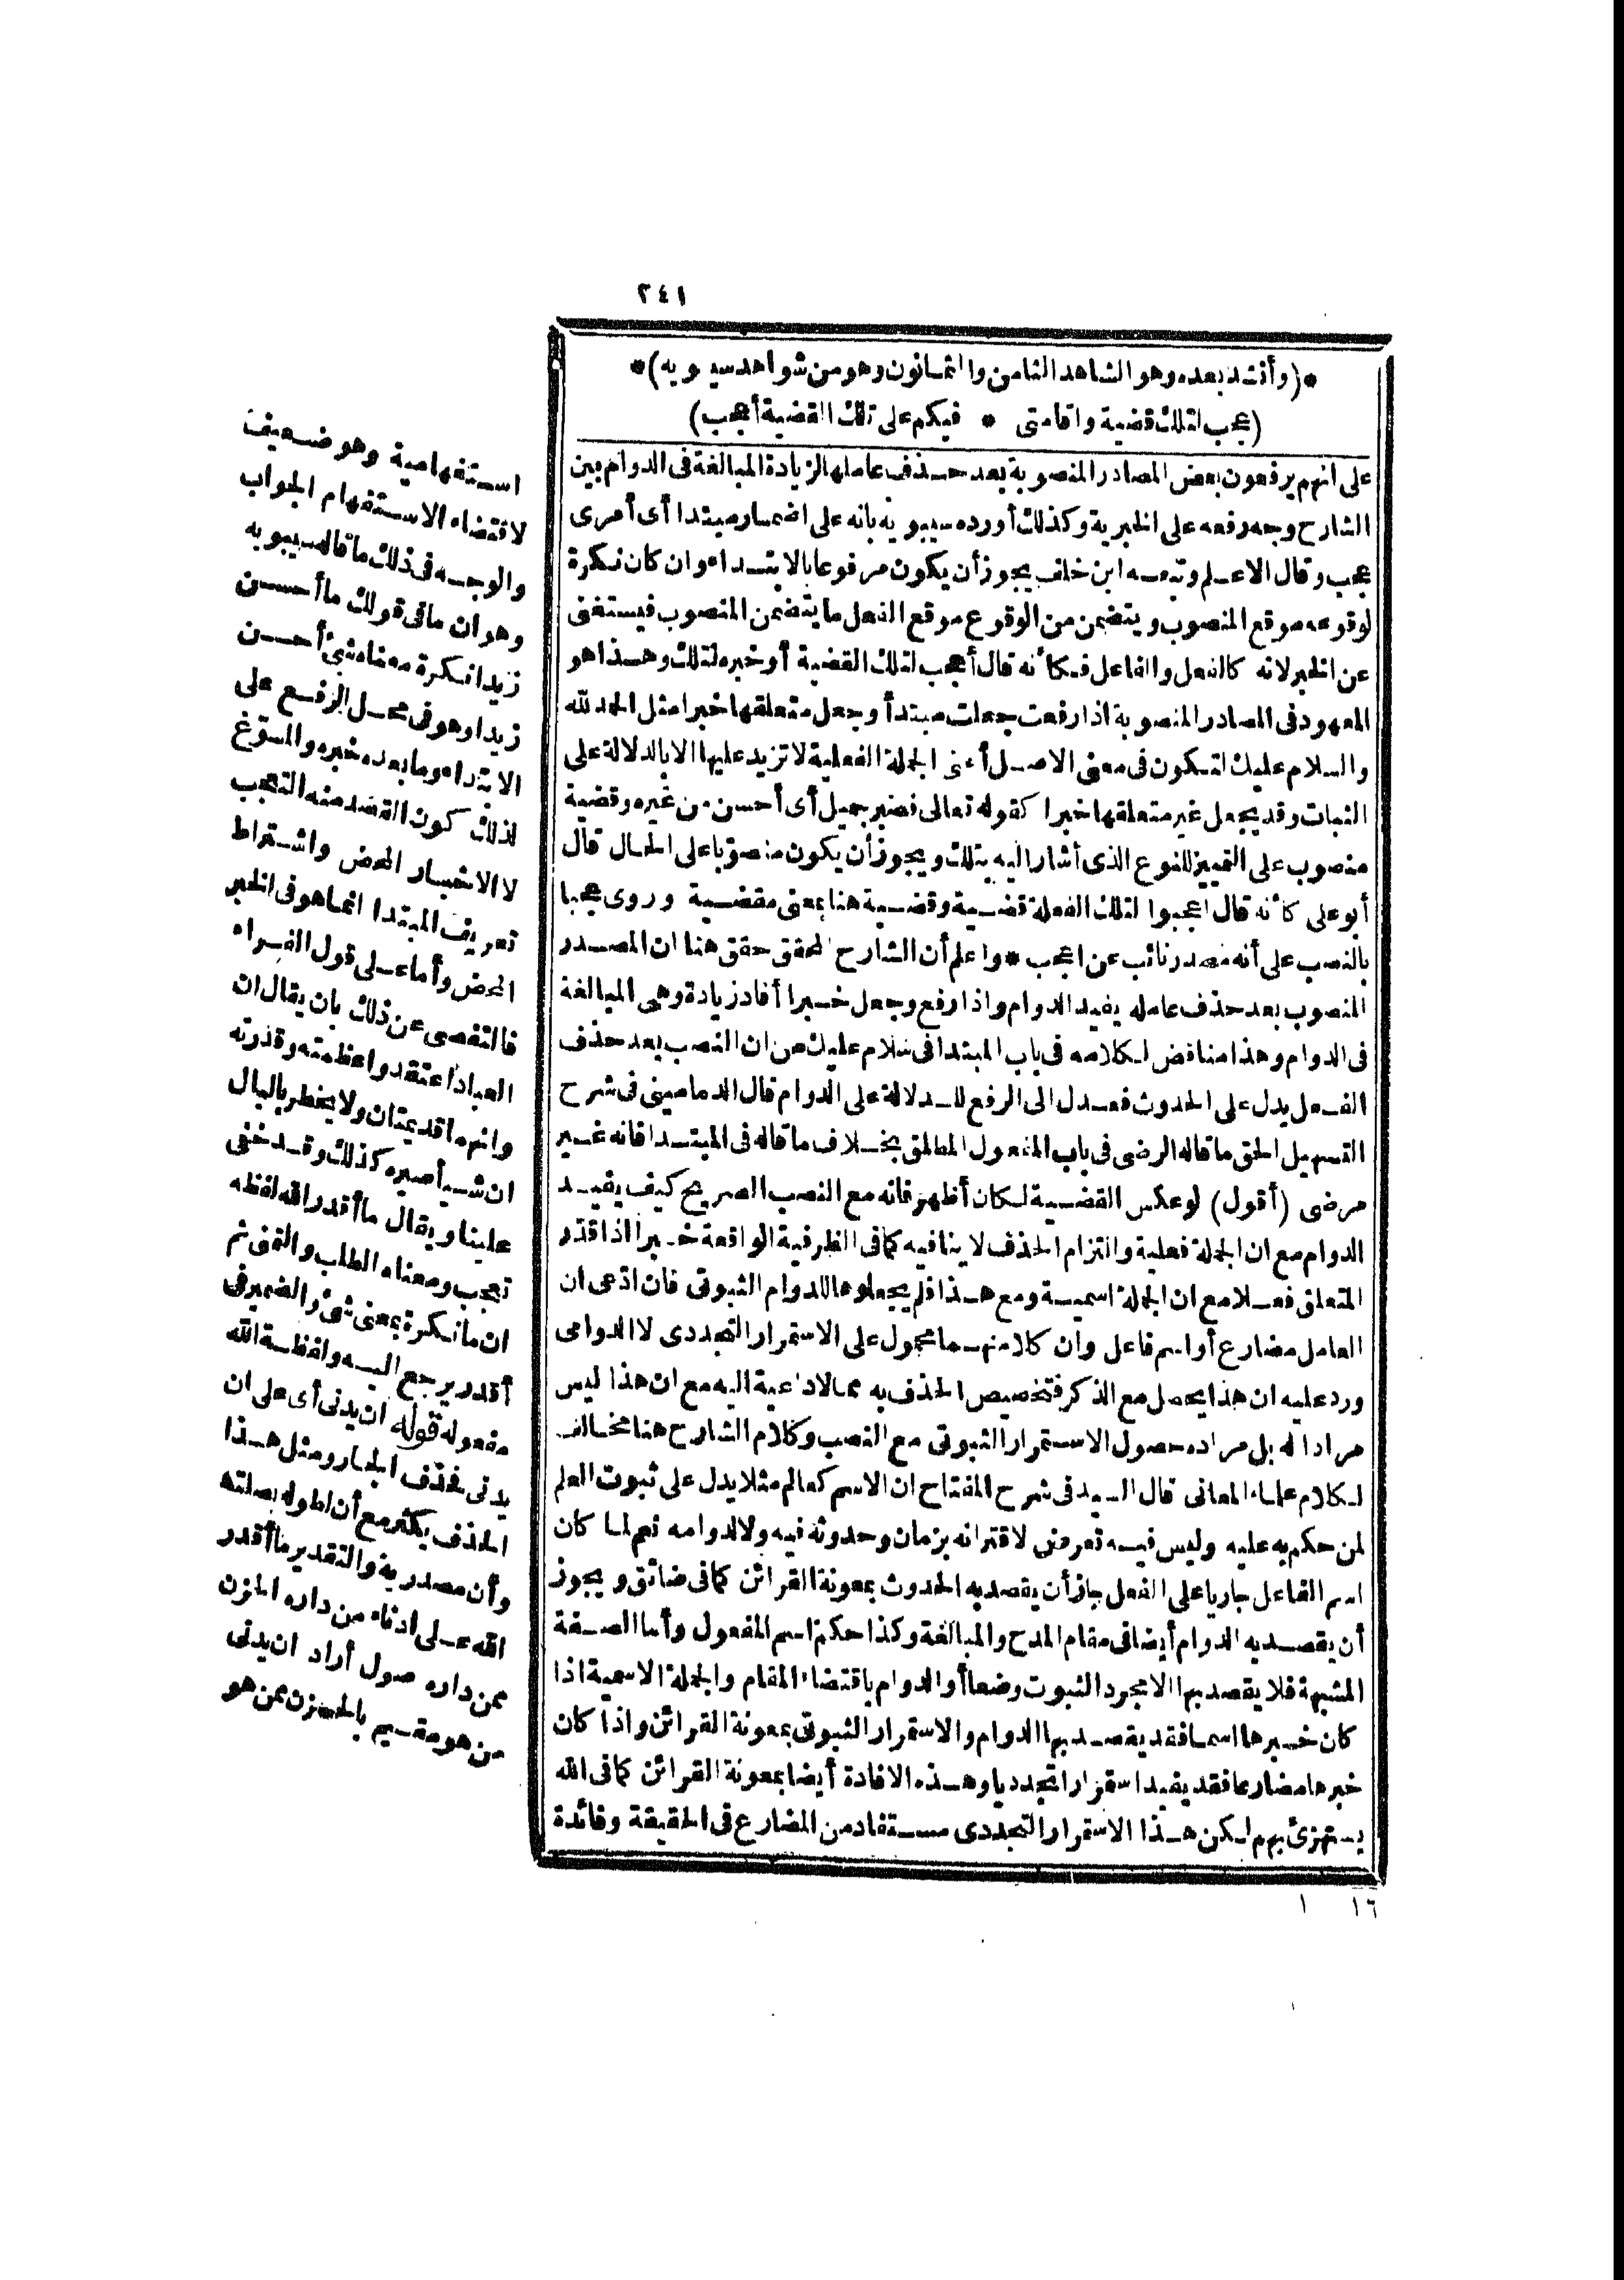 ٢٤١
*(وأنشد بعده وهو الشاهد الثامن والثمانون وهو من شواهد سيبويه)*
(عجب لتلك قضية واقامتى * فيكم على تلك القضية أعجب)
على انهم يرفعون بعض المصادر المنصوبة بعد حذف عاملها لزيادة المبالغة فى الدوام بين
الشارح وجه رفعه على الخبرية وكذلك أورده سيبويه بانه على اضمار مبتدا أى أمرى
عجب وقال الاعلم وتبعه ابن خلف يجوز أن يكون مرفوعا بالابتداء وان كان نكرة
لوقوعه موقع المنصوب ويتضمن من الوقوع موقع الفعل ما يتضمن المنصوب فيستغنى
عن الخبر لانه كالفعل والفاعل فكأنه قال أعجب لتلك القضية أو خبره لتلك وهذا هو
المعهود فى المصادر المنصوبة اذا رفعت جعلت مبتدأ وجعل متعلقها خبرا مثل الحمد لله
والسلام عليك لتكون فى معنى الاصل أعنى الجملة الفعلية لا تزيد عليها الا بالدلالة على
الثبات وقد يجعل غير متعلقها خبرا كقوله تعالى فصبر جميل أى أحسن من غيره وقضية
منصوب على التمييز للنوع الذى أشار اليه بتلك ويجوز أن يكون منصوبا على الحال قال
أبو على كأنه قال اعجبوا لتلك الفعلة قضية وقضية هنا بمعنى مقضية وروى عجبا
بالنصب على أنه مصدر نائب عن اعجب * واعلم أن الشارح المحقق حقق هنا ان المصدر
المنصوب بعد حذف عامله يفيد الدوام واذا رفع وجعل خبرا أفاد زيادة وهى المبالغة
فى الدوام وهذا مناقض لكلامه فى باب المبتدا فى سلام عليك من ان النصب بعد حذف
الفعل يدل على الحدوث فعدل الى الرفع للدلالة على الدوام قال الدمامينى فى شرح
التسهيل الحق ما قاله الرضى فى باب المفعول المطلق بخلاف ما قاله فى المبتدا فانه غير
مرضى (أقول) لو عكس القضية لكان أظهر فانه مع النصب الصريح كيف يفيد
الدوام مع ان الجملة فعلية والتزام الحذف لا ينافيه كما فى الظرفية الواقعة خبرا اذا قدر
المتعلق فعلا مع ان الجملة اسمية ومع هذا فلم يجعلوها للدوام الثبوتى فان ادعى ان
العامل مضارع أو اسم فاعل وان كلا منهما محمول على الاستمرار التجددى لا الدوامى
ورد عليه ان هذا يحصل مع الذكر فتخصيص الحذف به مما لا داعية اليه مع ان هذا ليس
مرادا له بل مراده حصول الاستمرار الثبوتى مع النصب وكلام الشارح هنا مخالف
لكلام علماء المعانى قال السيد فى شرح المفتاح ان الاسم كعالم مثلا يدل على ثبوت العلم
لمن حكم به عليه وليس فيه تعرض لاقترانه بزمان وحدوثه فيه ولا لدوامه نعم لما كان
اسم الفاعل جاريا على الفعل جاز أن يقصد به الحدوث بمعونة القرائن كما فى ضائق ويجوز
أن يقصد به الدوام أيضا فى مقام المدح والمبالغة وكذا حكم اسم المفعول وأما الصفة
المشبهة فلا يقصد بها الا مجرد الثبوت وضعا أو الدوام باقتضاء المقام والجملة الاسمية اذا
كان خبرها اسما فقد يقصد بها الدوام والاستمرار الثبوتى بمعونة القرائن واذا كان
خبرها مضارعا فقد يفيد استمرارا تجدديا وهذه الافادة أيضا بمعونة القرائن كما فى الله
يستهزئ بهم لكن هذا الاستمرار التجددى مستفاد من المضارع فى الحقيقة وفائدة
١٦ ١
استفهامية وهو ضعيف
لاقتضاء الاستفهام الجواب
والوجه فى ذلك ما قاله سيبويه
وهو ان ما فى قولك ما أحسن
زيدا نكرة معناه شئ أحسن
زيدا وهو فى محل الرفع على
الابتداء وما بعده خبره والمسوّغ
لذلك كون القصد منه التعجب
لا الاخبار المحض واشتراط
تعريف المبتدا انما هو فى الخبر
المحض وأما على قول الفراء
فالتفصى عن ذلك بان يقال ان
العباد اعتقدوا عظمته وقدرته
وانهما قديمتان ولا يخطر بالبال
ان شيأ صيره كذلك وقد خفى
علينا ويقال ما أقدر الله لفظه
تعجب ومعناه الطلب والتمنى ثم
ان ما نكرة بمعنى شئ والضمير فى
أقدر يرجع اليه ولفظة الله
مفعوله قوله ان يدنى أى على ان
يدنى فحذف الجار ومثل هذا
الحذف يكثر مع أن لطوله بصلته
وأن مصدرية والتقدير ما أقدر
الله على ادناء من داره الحزن
ممن داره صول أراد ان يدنى
من هو مقيم بالحزن ممن هو